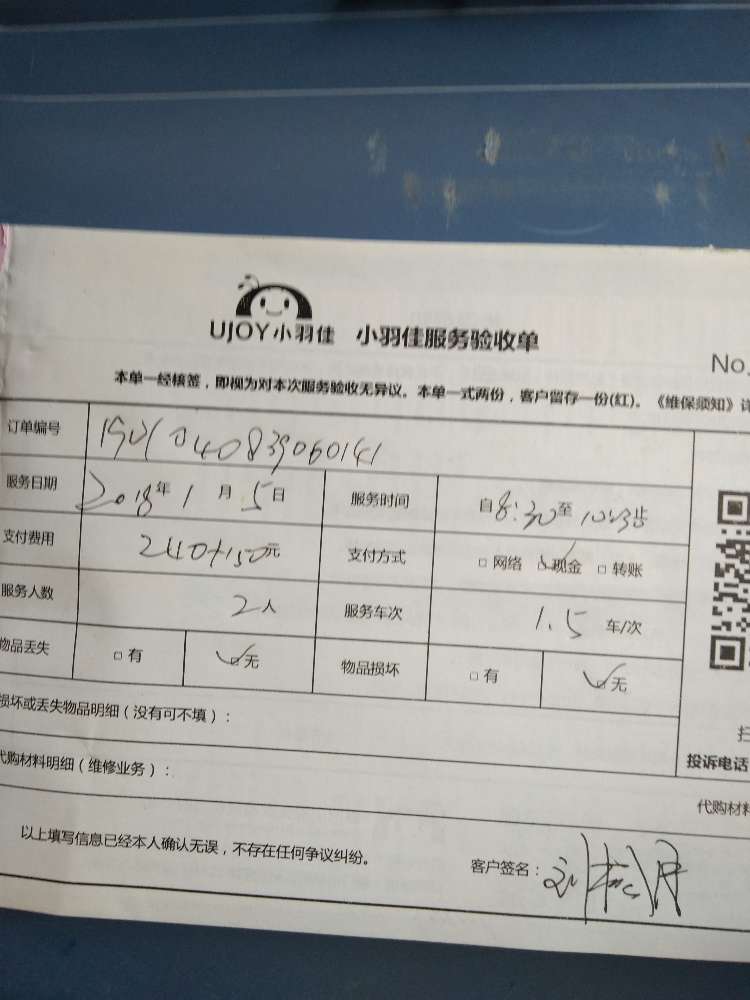 UJOY小羽佳 小羽佳服务验收单
No.
本单一经核签，即视为对本次服务验收无异议。本单一式两份，客户留存一份(红)。《维保须知》详
订单编号
服务日期 2018年1月5日 服务时间 自8:30至10:35止
支付费用 240+150元 支付方式 □网络 ☑现金 □转账
服务人数 2人 服务车次 1.5 车/次
物品丢失 □有 ☑无 物品损坏 □有 ☑无
损坏或丢失物品明细（没有可不填）：
投诉电话
代购材料明细（维修业务）：
代购材料
以上填写信息已经本人确认无误，不存在任何争议纠纷。 客户签名：